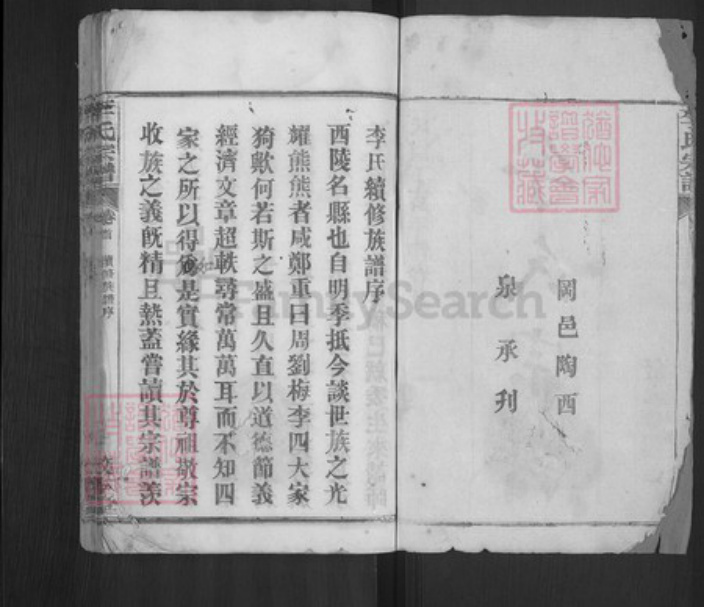 岡邑陶西
泉承刋
李氏續修族譜序
西陵名縣也自明季抵今談世族之光
耀熊熊者咸鄭重曰周劉梅李四大家
猗歟何若斯之盛且久直以道德節義
經濟文章超軼尋常萬萬耳而不知四
家之所以得爲是實緣其於尊祖敬宗
收族之義旣精且熱蓋嘗讀其宗譜羨
李氏宗譜
卷首
續修族譜序
FamilySearch